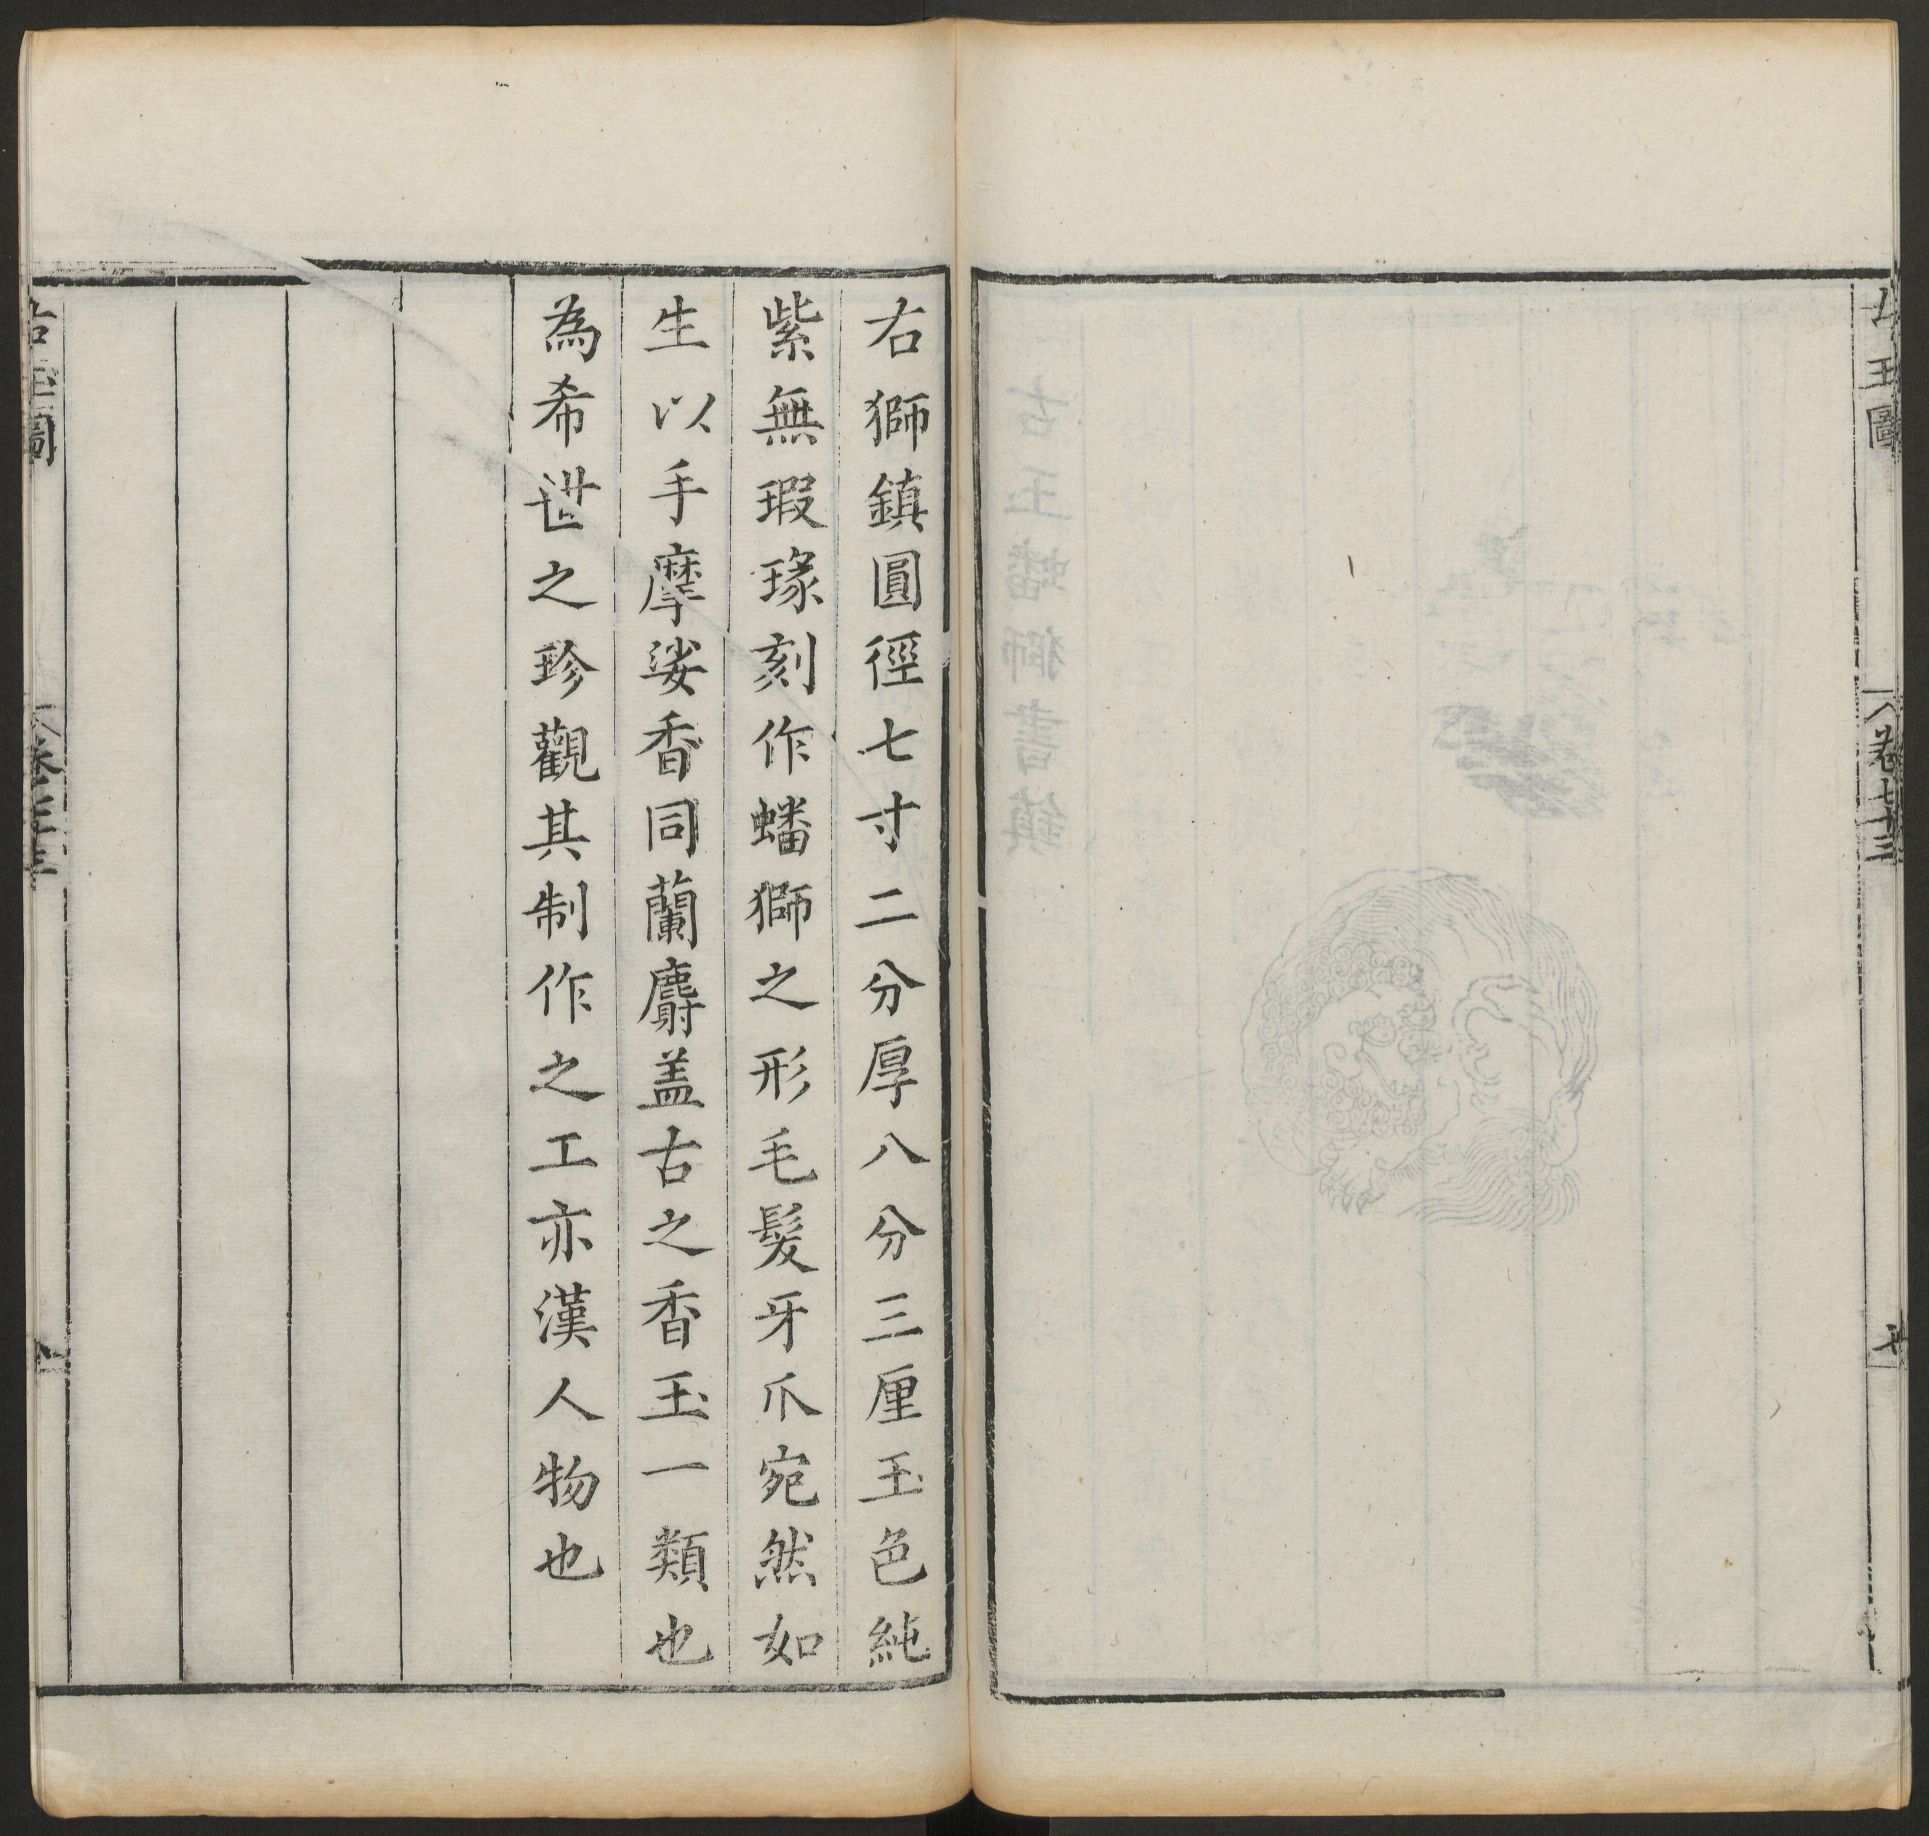 古玉圖
卷七十三
右獅鎮圓徑七寸二分厚八分三厘玉色純
紫無瑕瑑刻作蟠獅之形毛髮牙爪宛然如
生以手摩娑香同蘭麝盖古之香玉一類也
為希世之珍觀其制作之工亦漢人物也
古玉圖